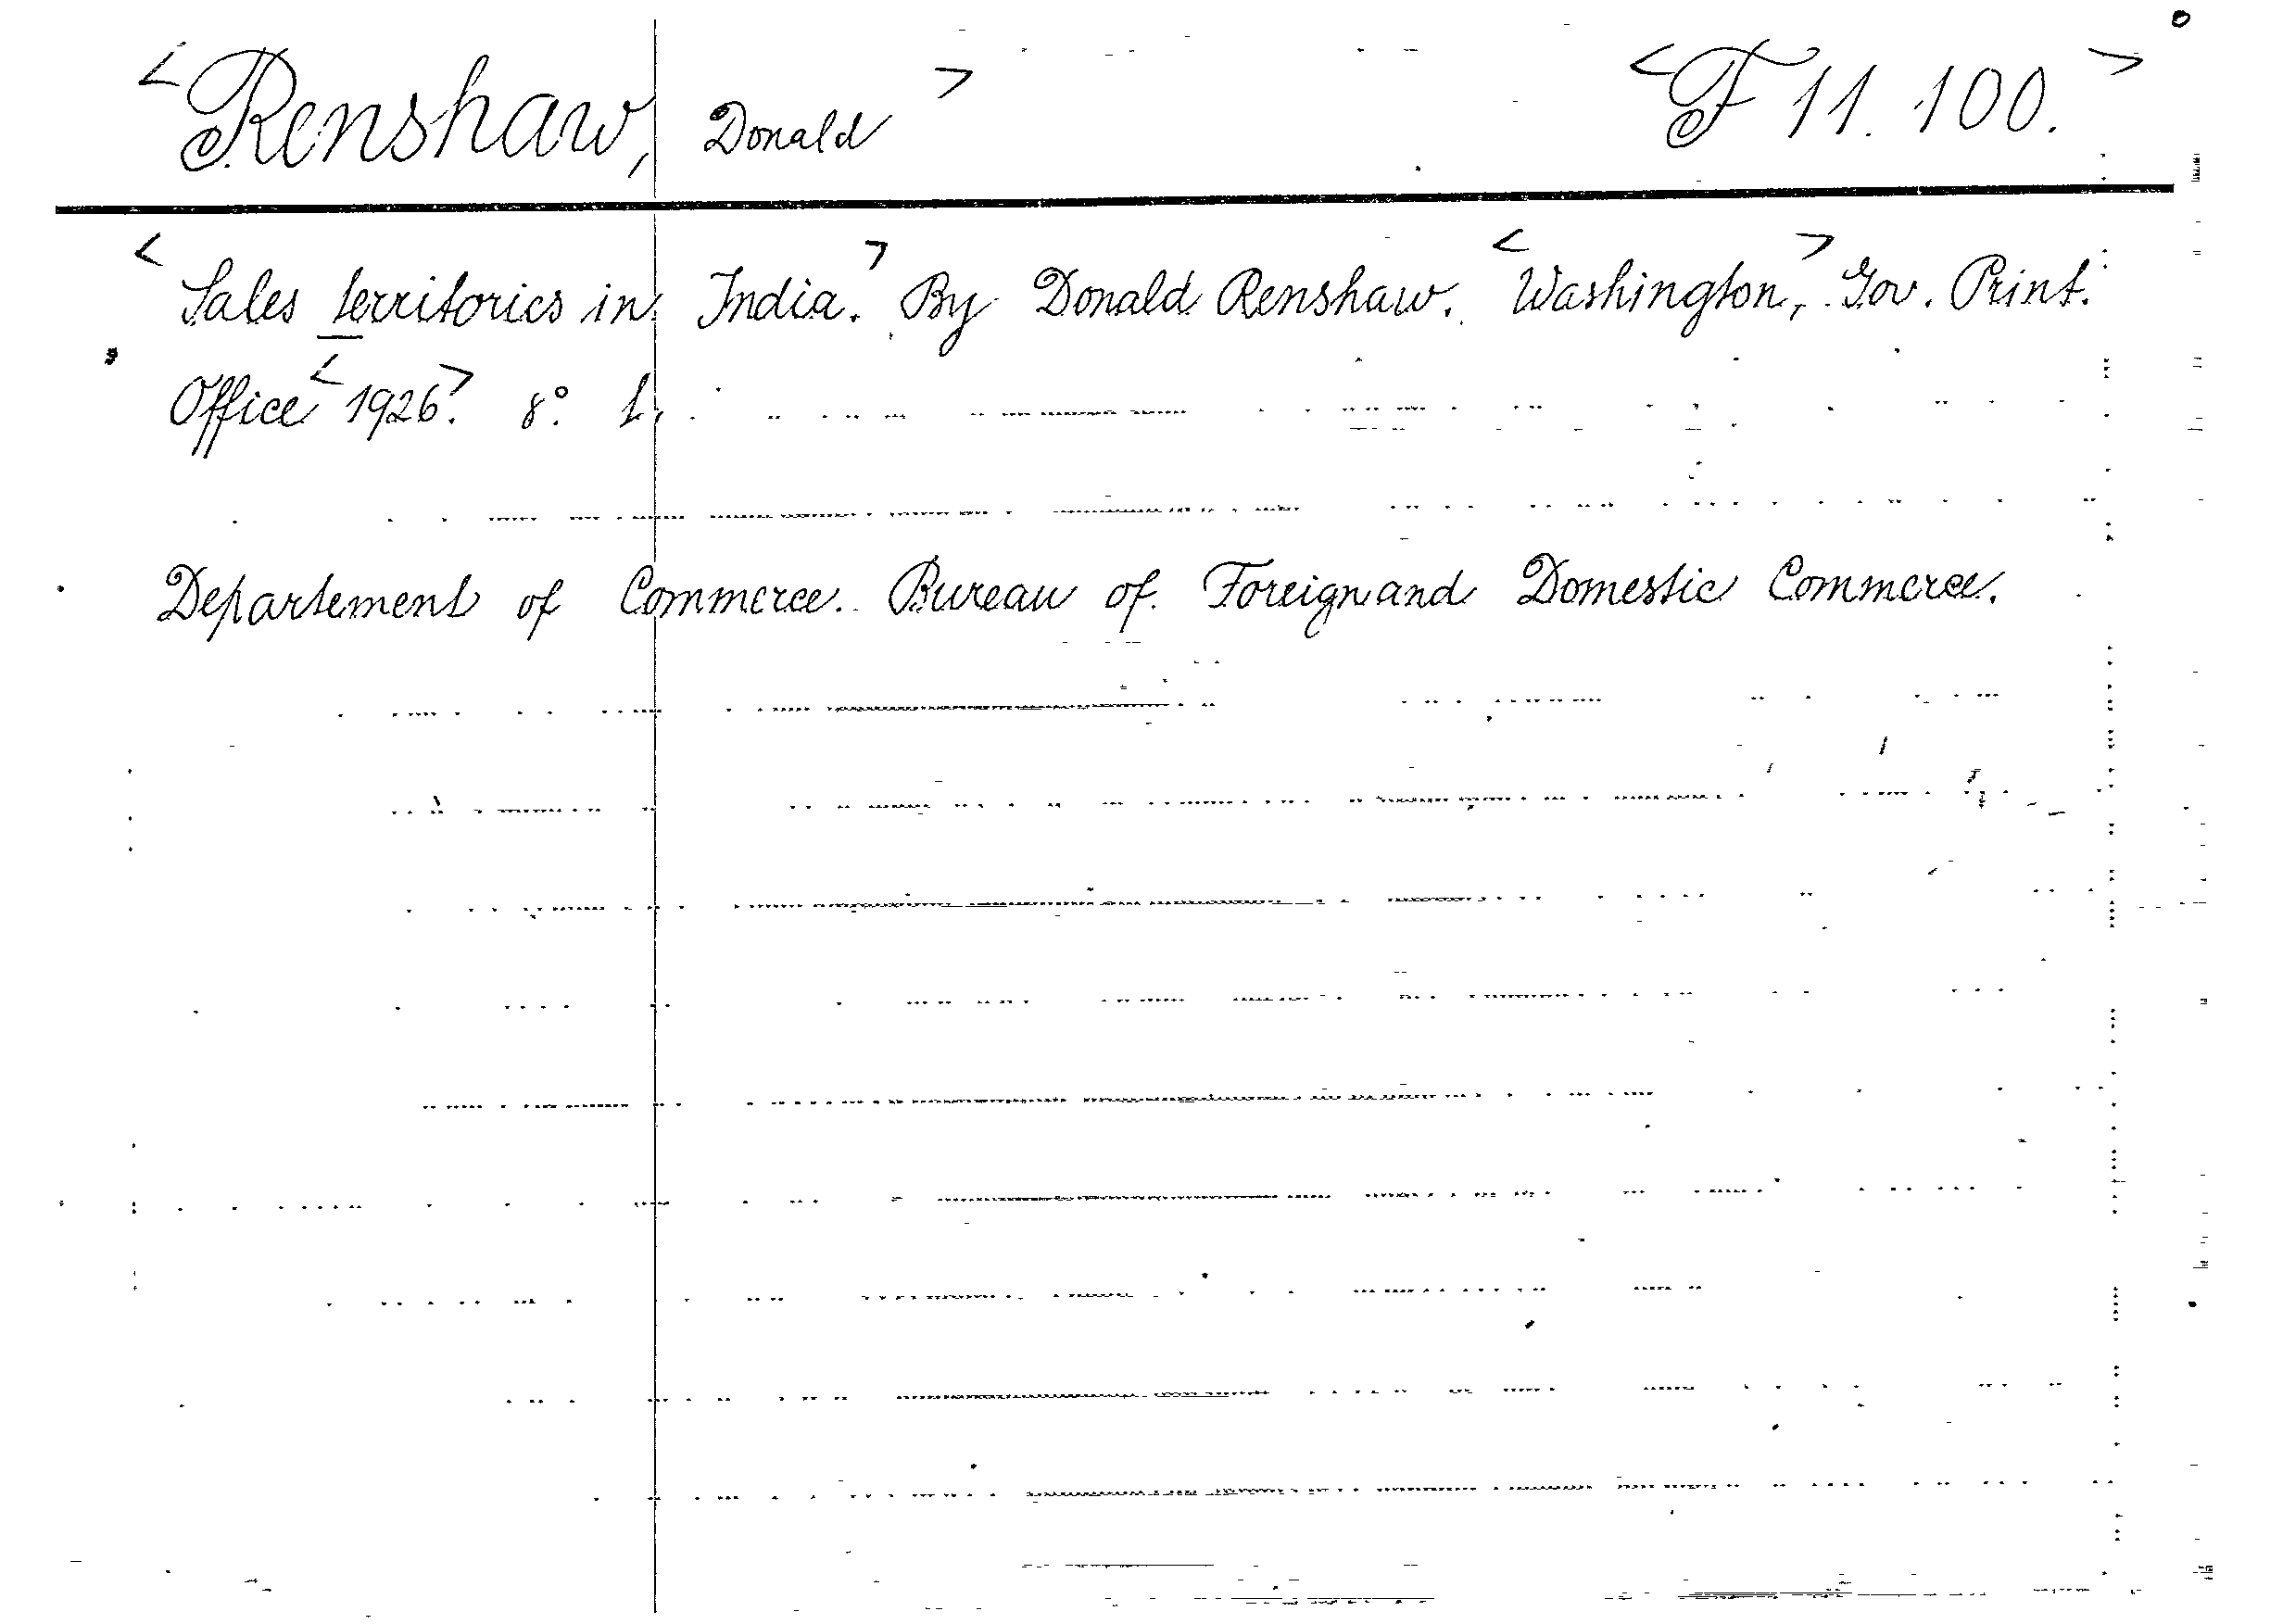 <Renshaw, Donald> <F 11. 100.>
<Sales territories in India.> By Donald Renshaw. <Washington,> Gov. Print.
Office <1926>. 8°.
Departement of Commerce. Bureau of Foreign and Domestic Commerce.